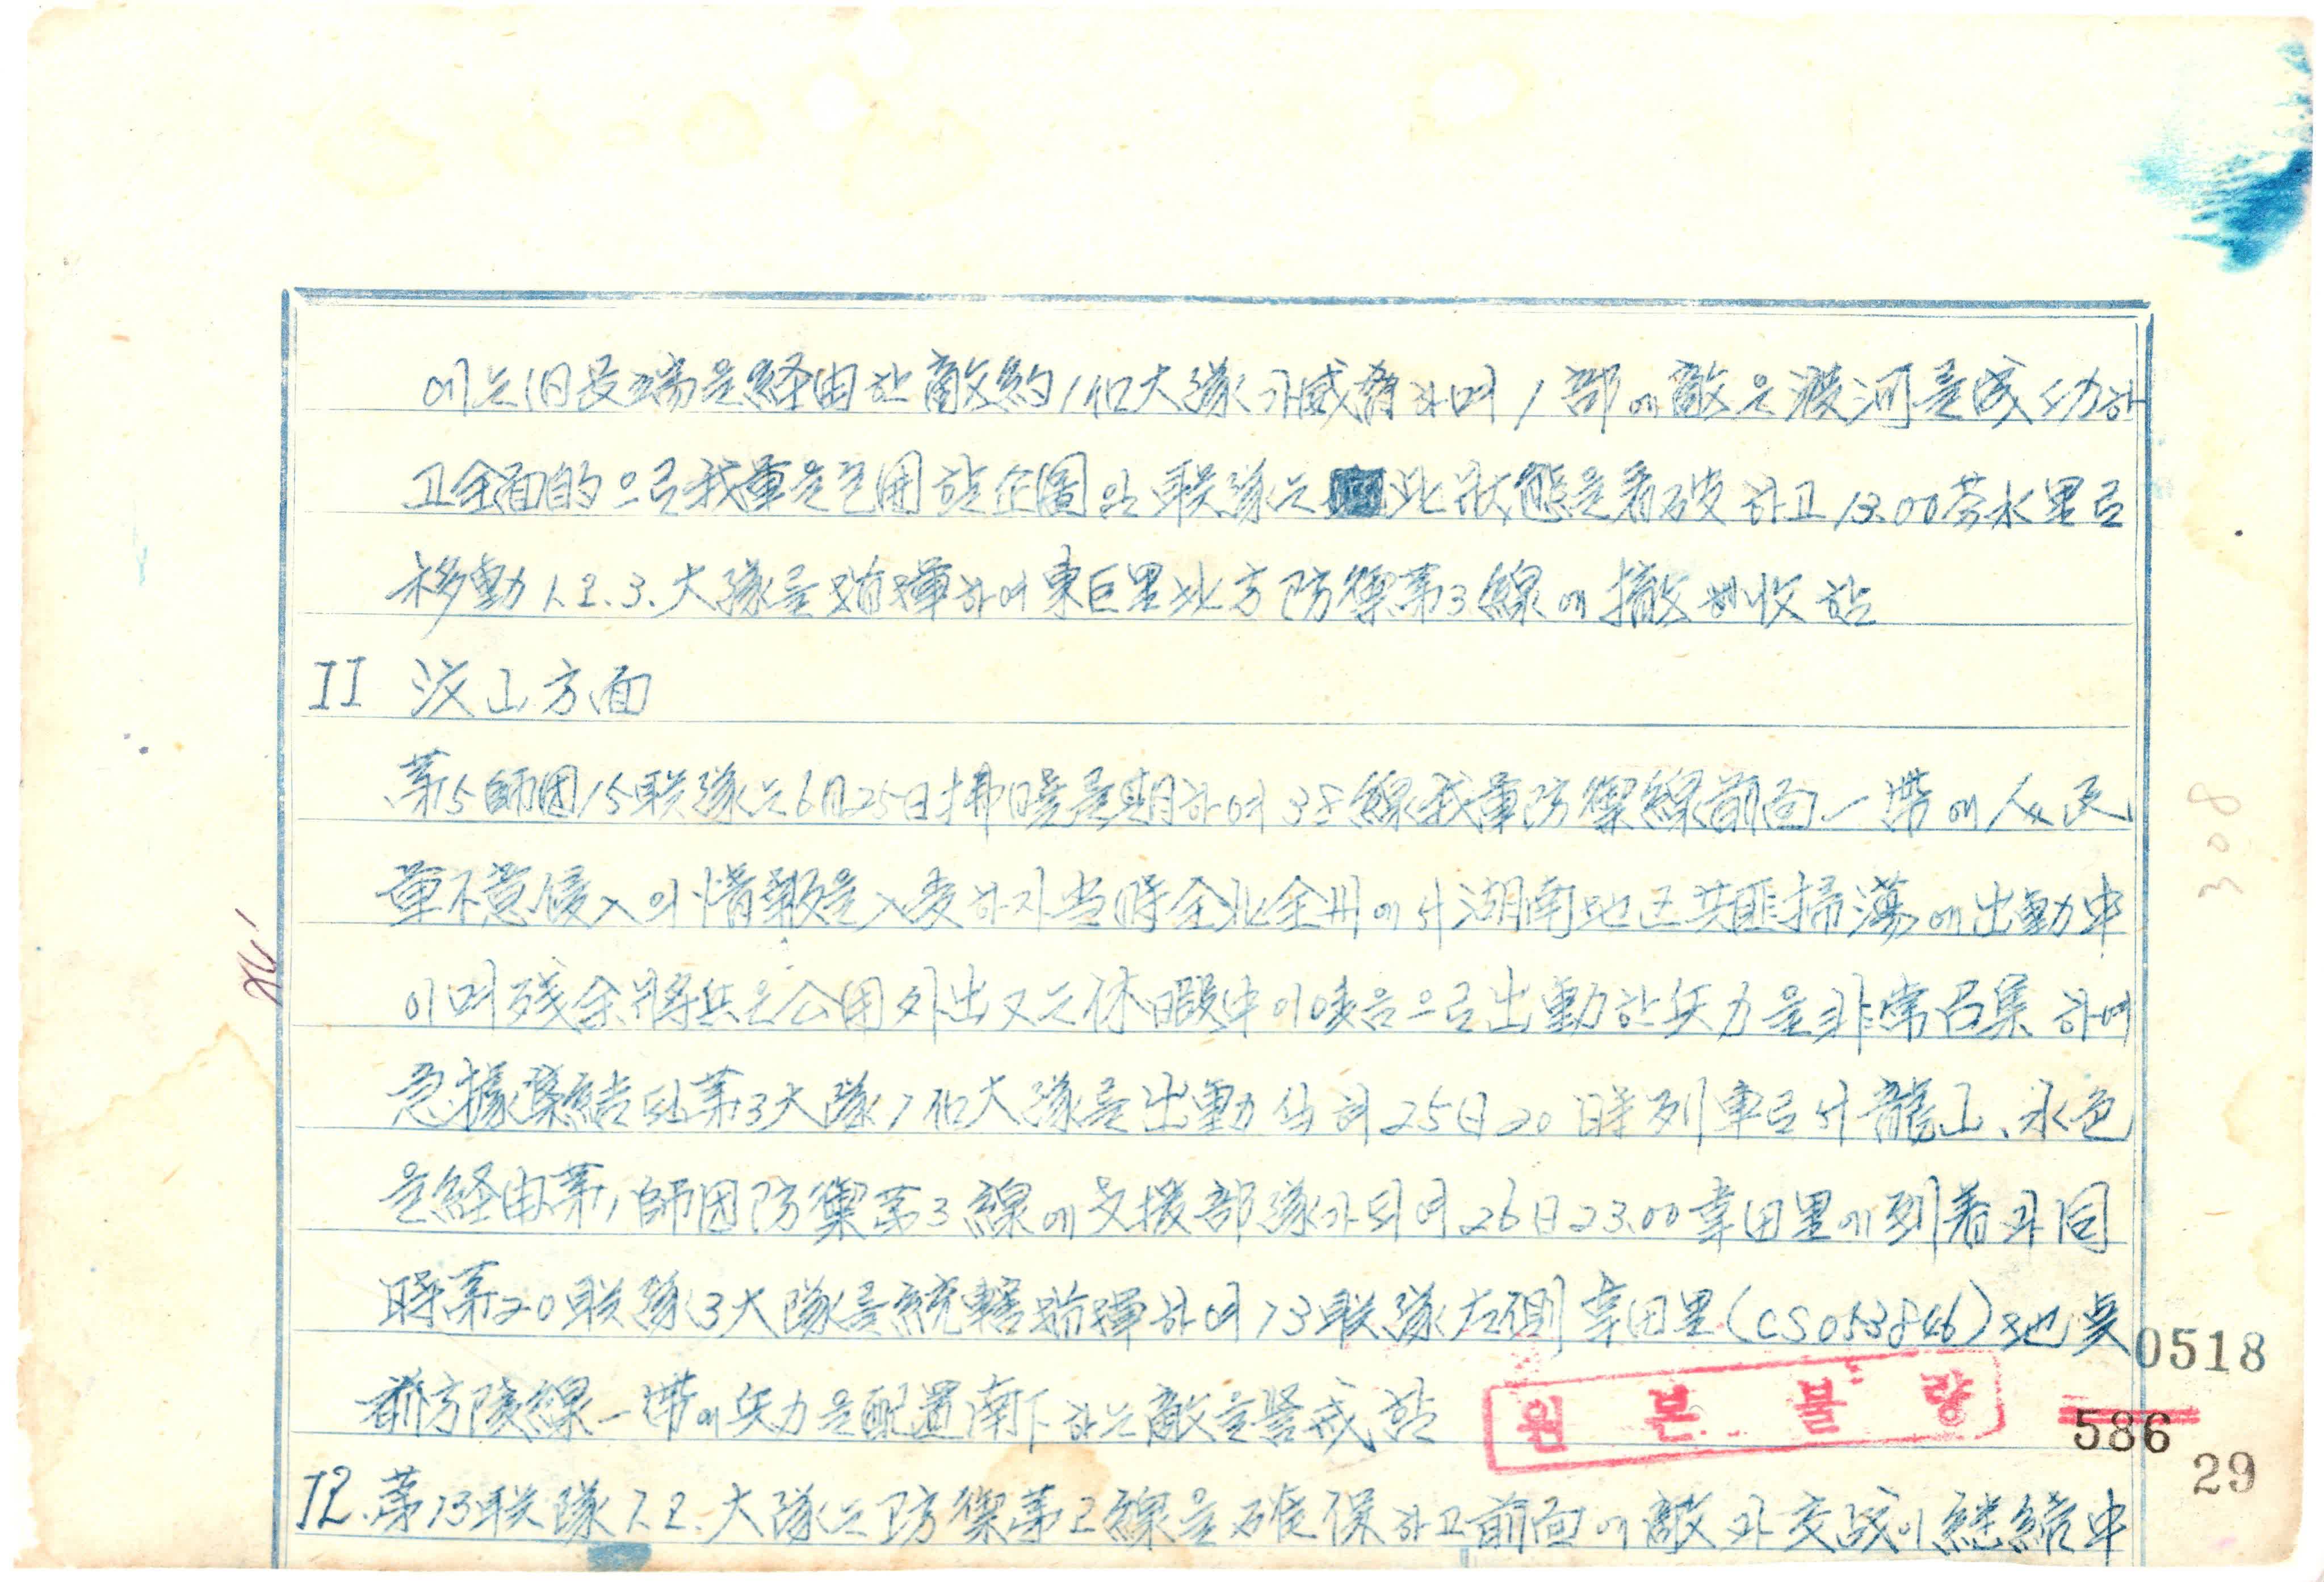 에는 旧長湍을 経由한 敵 約 1個大隊가 威脅하며 1部에 敵은 渡河를 成功하
고 全面的으로 我軍을 包囲할 企圖임 联隊는 此 狀態를 看破하고 13.00 芬水里로
移動 1.2.3.大隊를 指揮하여 東巨里 北方 防禦 第3線에 撤收함
II 汶山方面
第5師団15联隊는 6月25日 拂曉를 期하여 38線 我軍防禦線 前面一帶에 人民
軍 不意侵入의 情報를 入麦하자 当時 全北全州에서 湖南地区 共匪掃蕩에 出動中
이며 残余 将兵은 公用外出 又는 休暇中이였음으로 出動한 兵力을 非常召集하여
急據 集結된 第3大隊 1個大隊를 出動식혀 25日20時 列車로서 龍山、水色
을 経由 第1師団 防禦 第3線에 支援部隊가 되여 26日23.00 韋田里에 到着과 同
時 第20联隊3大隊를 統轄指揮하여 13联隊 左側 韋田里(CS053846)地点
前方 陵線一帶에 兵力을 配置 南下하는 敵을 警戒함
12.第13联隊 1.2.大隊는 防禦 第2線을 確保하고 前面에 敵과 交戦이 継續中
308
0518
원본불량
586
29